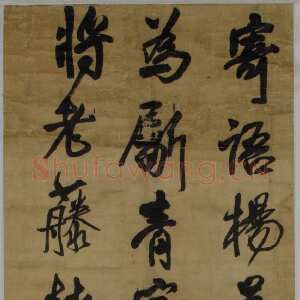 寄语楊
為斸青
将老藤
Shufawang.cn